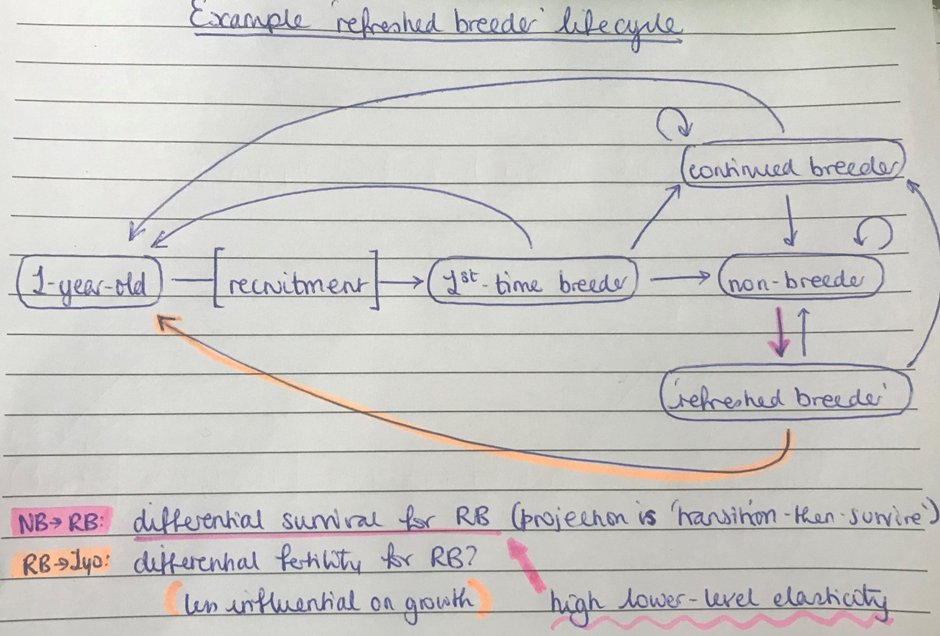 Example 'refreshed breeder' lifecycle
continued breeder
1-year-old
[recruitment]
1st-time breeder
non-breeder
'refreshed breeder'
NB→RB: differential survival for RB (projection is 'transition-then-survive')
RB→1yo: differential fertility for RB?
(less influential on growth)
high lower-level elasticity